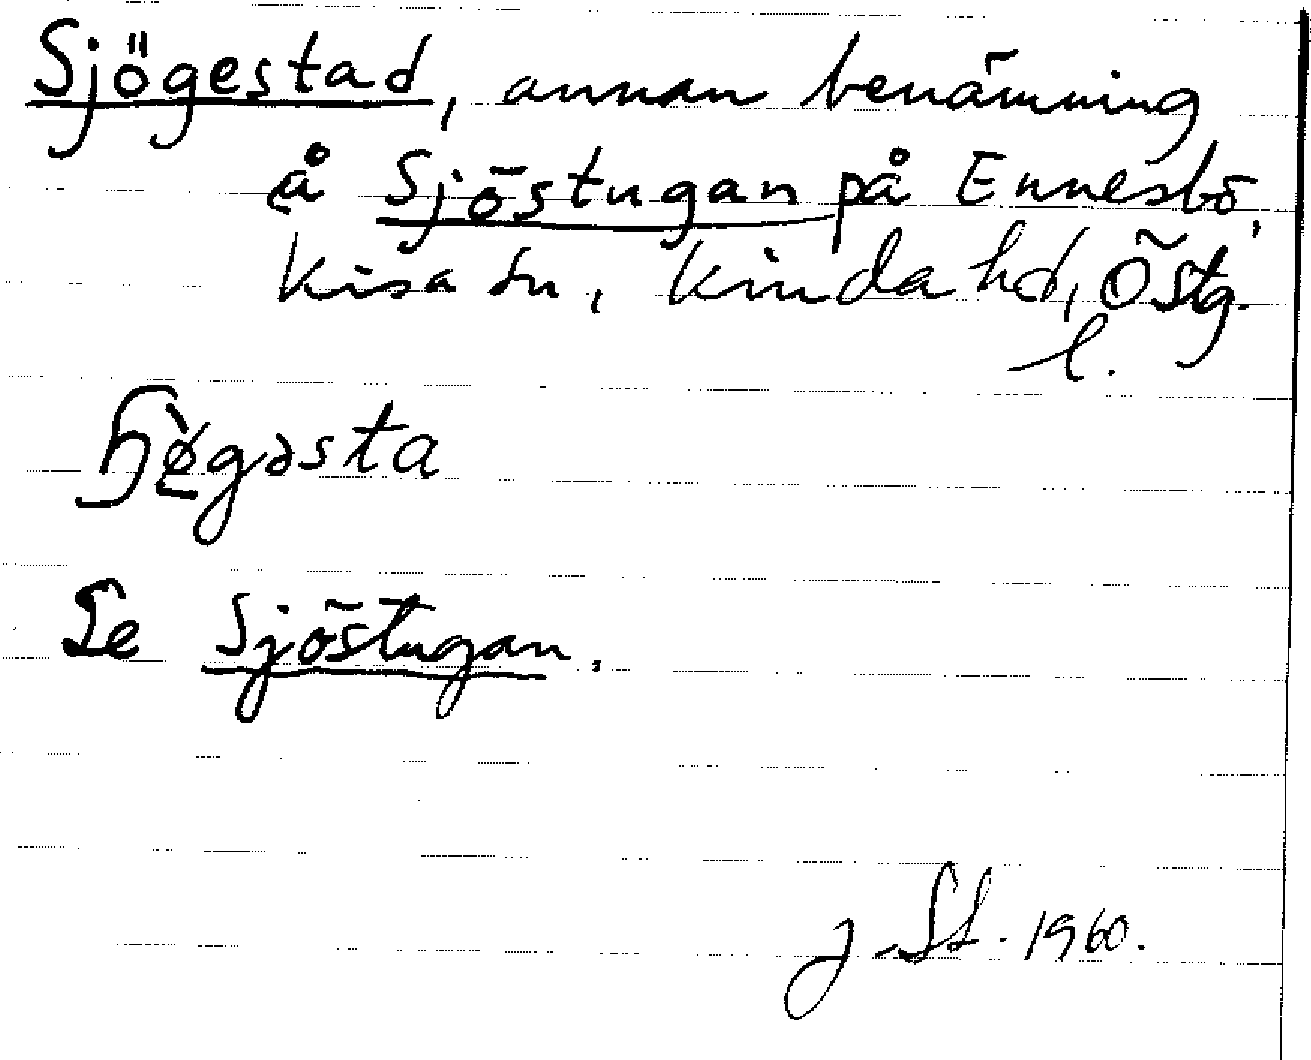 Sjögestad, annan benämning
å Sjöstugan på Ennesbo,
Kisa sn, Kinda hd, Östg.
l.
ɧø̀gəsta
Se Sjöstugan.
J. St. 1960.